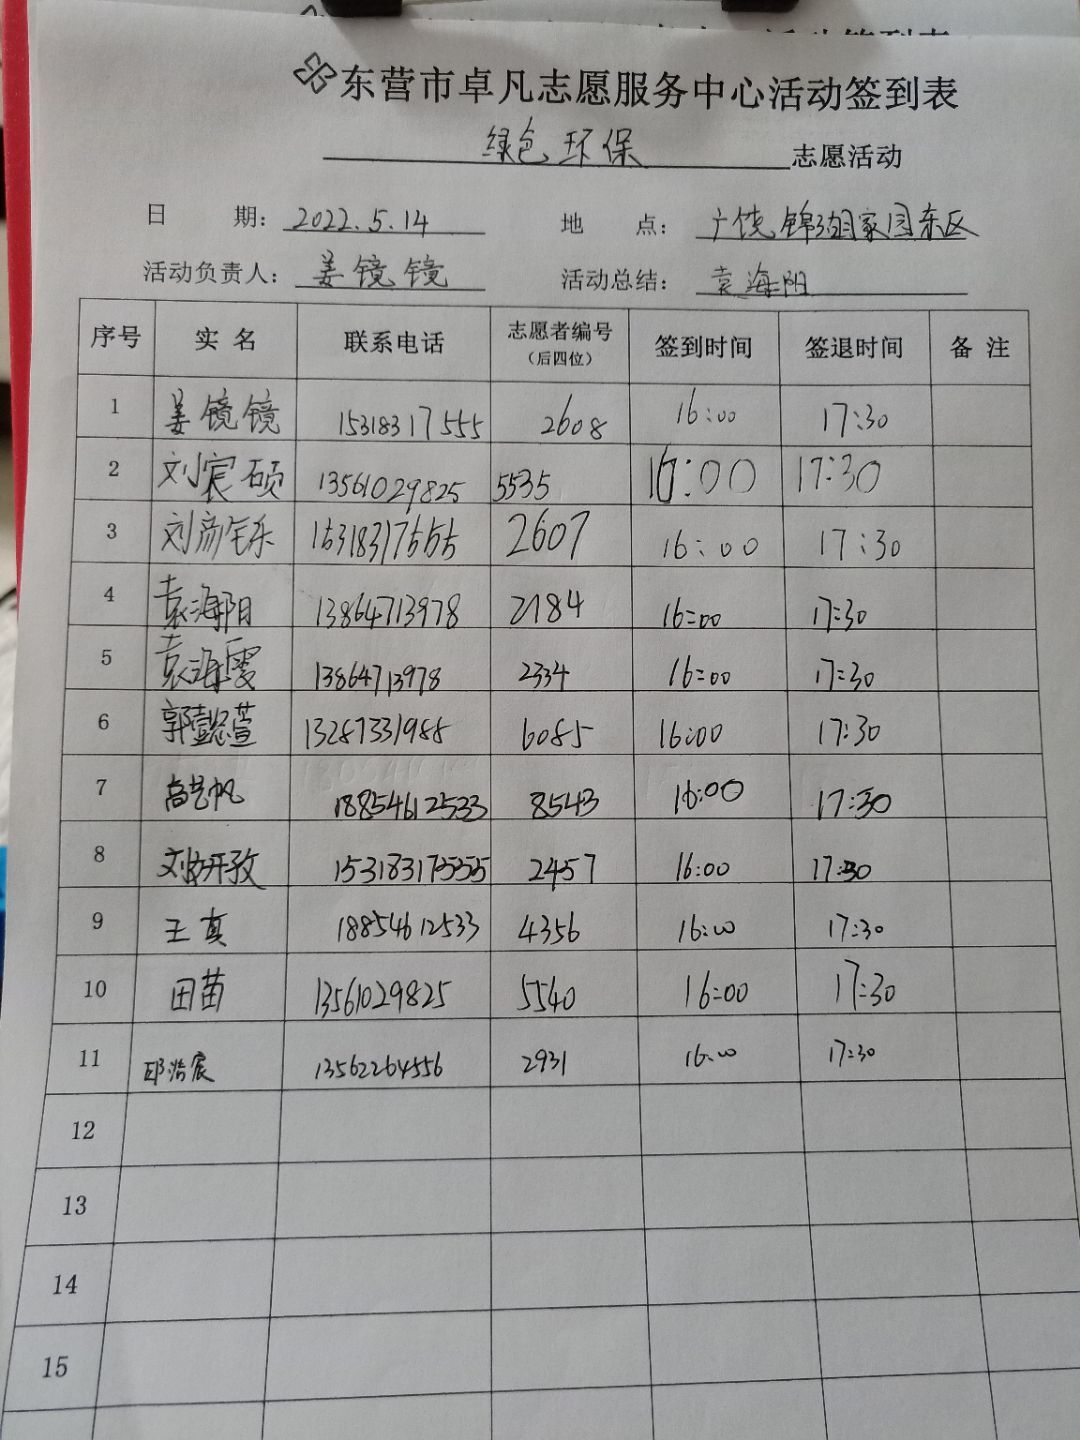 东营市卓凡志愿服务中心活动签到表
绿色环保 志愿活动
日 期: 2022.5.14 地 点: 广饶锦湖家园东区
活动负责人: 姜镜镜 活动总结: 袁海阳
序号 实名 联系电话 志愿者编号(后四位) 签到时间 签退时间 备注
1 姜镜镜 15318317555 2608 16:00 17:30
2 刘宸硕 13561029825 5535 16:00 17:30
3 15318317555 2607 16:00 17:30
4 袁海阳 13864713978 2184 16:00 17:30
5 袁海雯 13864713978 2334 16:00 17:30
6 郭懿萱 13287331988 6085 16:00 17:30
7 高艺帆 18854612533 8543 16:00 17:30
8 15318317555 2457 16:00 17:30
9 王真 18854612533 4356 16:00 17:30
10 田苗 13561029825 5540 16:00 17:30
11 邱浩宸 13562264556 2931 16:00 17:30
12
13
14
15